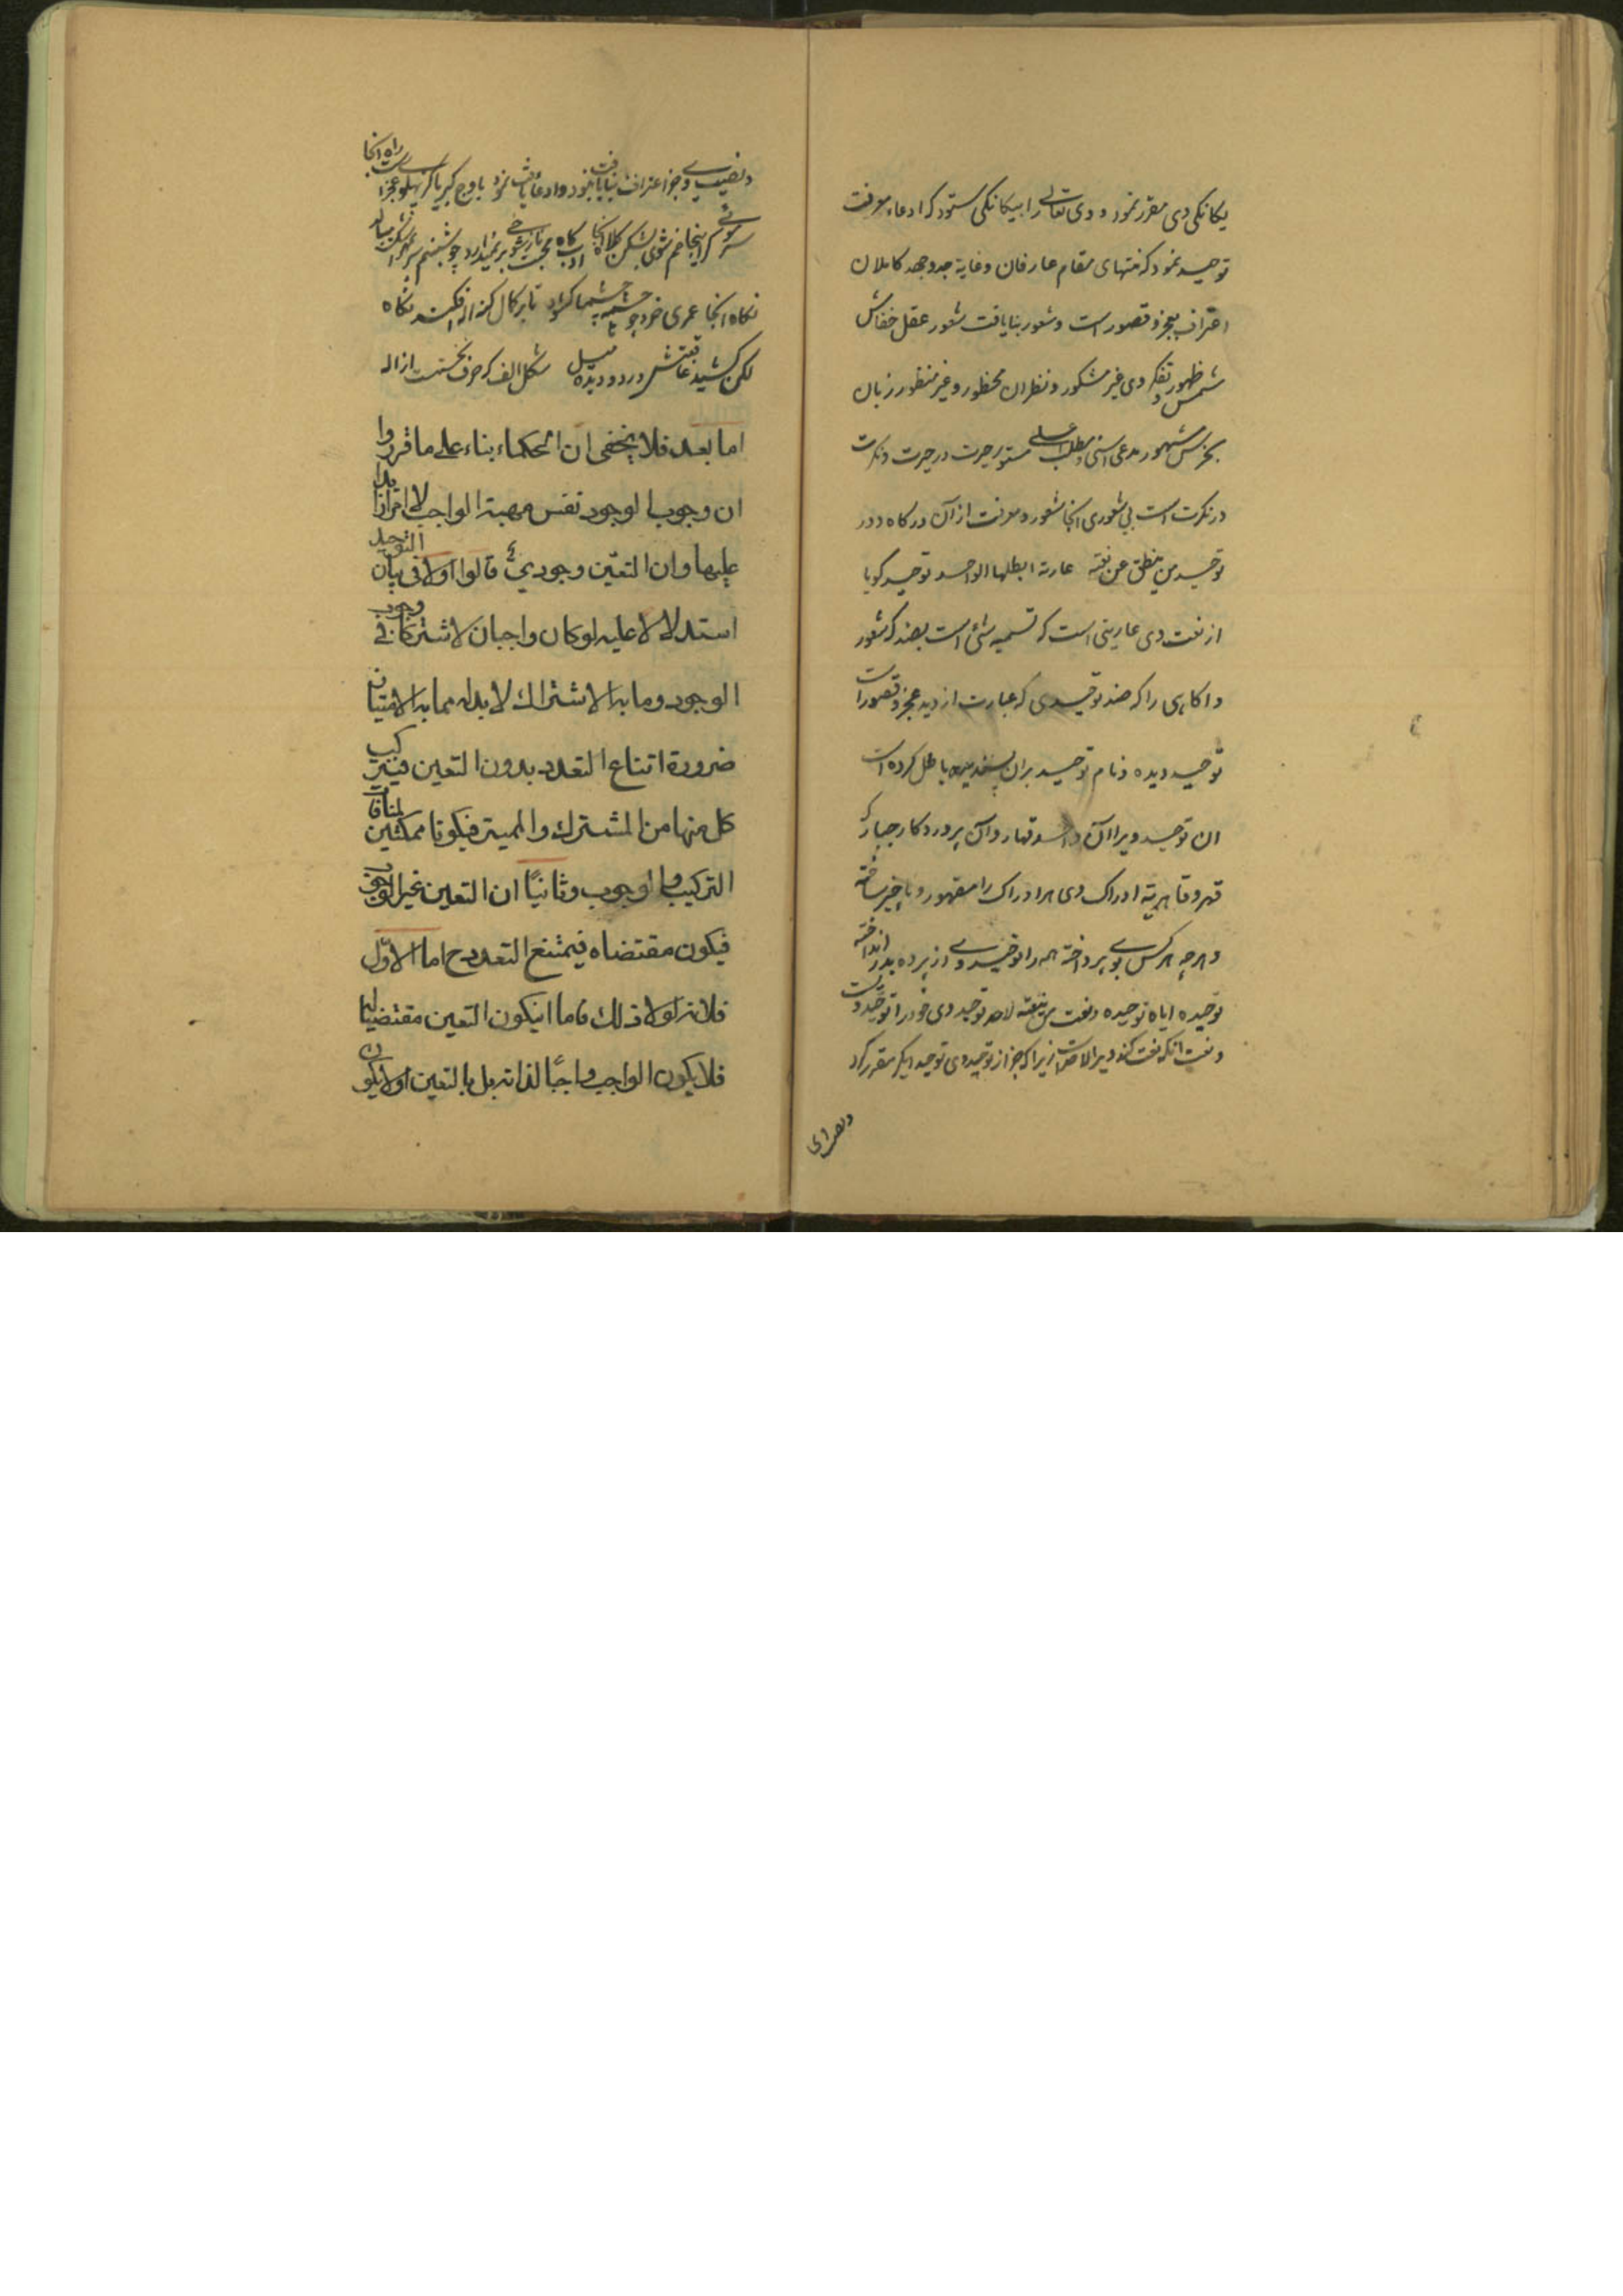 یکانکی وی مقرر نمود و وی تعالی را بیکانکی ستود که ادعاء معرفت
توحید نمود که منتهای مقام عارفان و غایة جد و جهد کاملان
اعتراف بعجز و قصور است و شعور بنایافت شعور عقل خفاش
شمس ظهور و تفکر وی غیر مشکور و نظر ان محظور و غیر منظور زبان
مدعی اسنی و مطلب اعلی مستور حیرت در حیرت و نکرت
در نکرت است بی شعوری انجا شعور و معرفت از آن درکاه دور
توحید من ینطق عن نعته عاریة ابطلها الواحد توحید کویا
از نعت وی عاریتی است که تسمیه شئ است بضد که شعور
و اکاهی را که ضد توحیدی که عبارت از دید عجز و قصور است
توحید دیده و نام توحید بران پسندیده باطل کرده است
ان توحید ویرا آن واحد قهار و آن پروردکار جبار که
قهر و قاهریة ادراک وی هر ادراک را مقهور و ناچیز ساخته
و هرچه هر کس بوی پرداخته همه را توحید وی از پرده بدر انداخته
توحیده ایاه توحیده و نعت من ینعته لاحد توحید وی خود را توحید ویست
و نعت انکه نعت کند ویرا لاحد است زیرا که جز از توحید وی توحید دیکر مقرر کرد
و نصیب وی جز اعتراف بنایافت نبود و ادعاء یافت نمود
سر کر اینجا خم شوی بشکن کلاه انجا ادب کاه محبت ناز شوخی بر نمیدارد چو شبنم سر بمهر اشک میبالد
نکاه انجا عمری خرد چو چشمه چشمها کشاد تا بر کمال کنه اله افکند نکاه
لکن کشید عاقبتش در دو دیده میل شکل الف که حرف نخستست از اله
اما بعد فلا یخفی ان الحکماء بناء علی ما قرروا
ان وجوب الوجود نفس مهیة الواجب لا امرا زائدا
علیها و ان التعین وجودیّ قالوا اولا فی بیان التوحید
استدلالا علیه لو کان واجبان لاشترکا فی وجوب
الوجود و ما به الاشتراك لا بد له مما به الامتیاز
ضرورة امتناع التعدد بدون التعین فیترکب
کل منهما من المشترك و الممیز فیکونا ممکنین لمنافاة
الترکیب الوجوب و ثانیًا ان التعین غیر الوجوب
فیکون مقتضاه فیمتنع التعدد ح اما الاوّل
فلانه لولا ذلك فاما ان یکون التعین مقتضیا له
فلا یکون الواجب واجبًا لذاته بل بالتعین او لا یکون